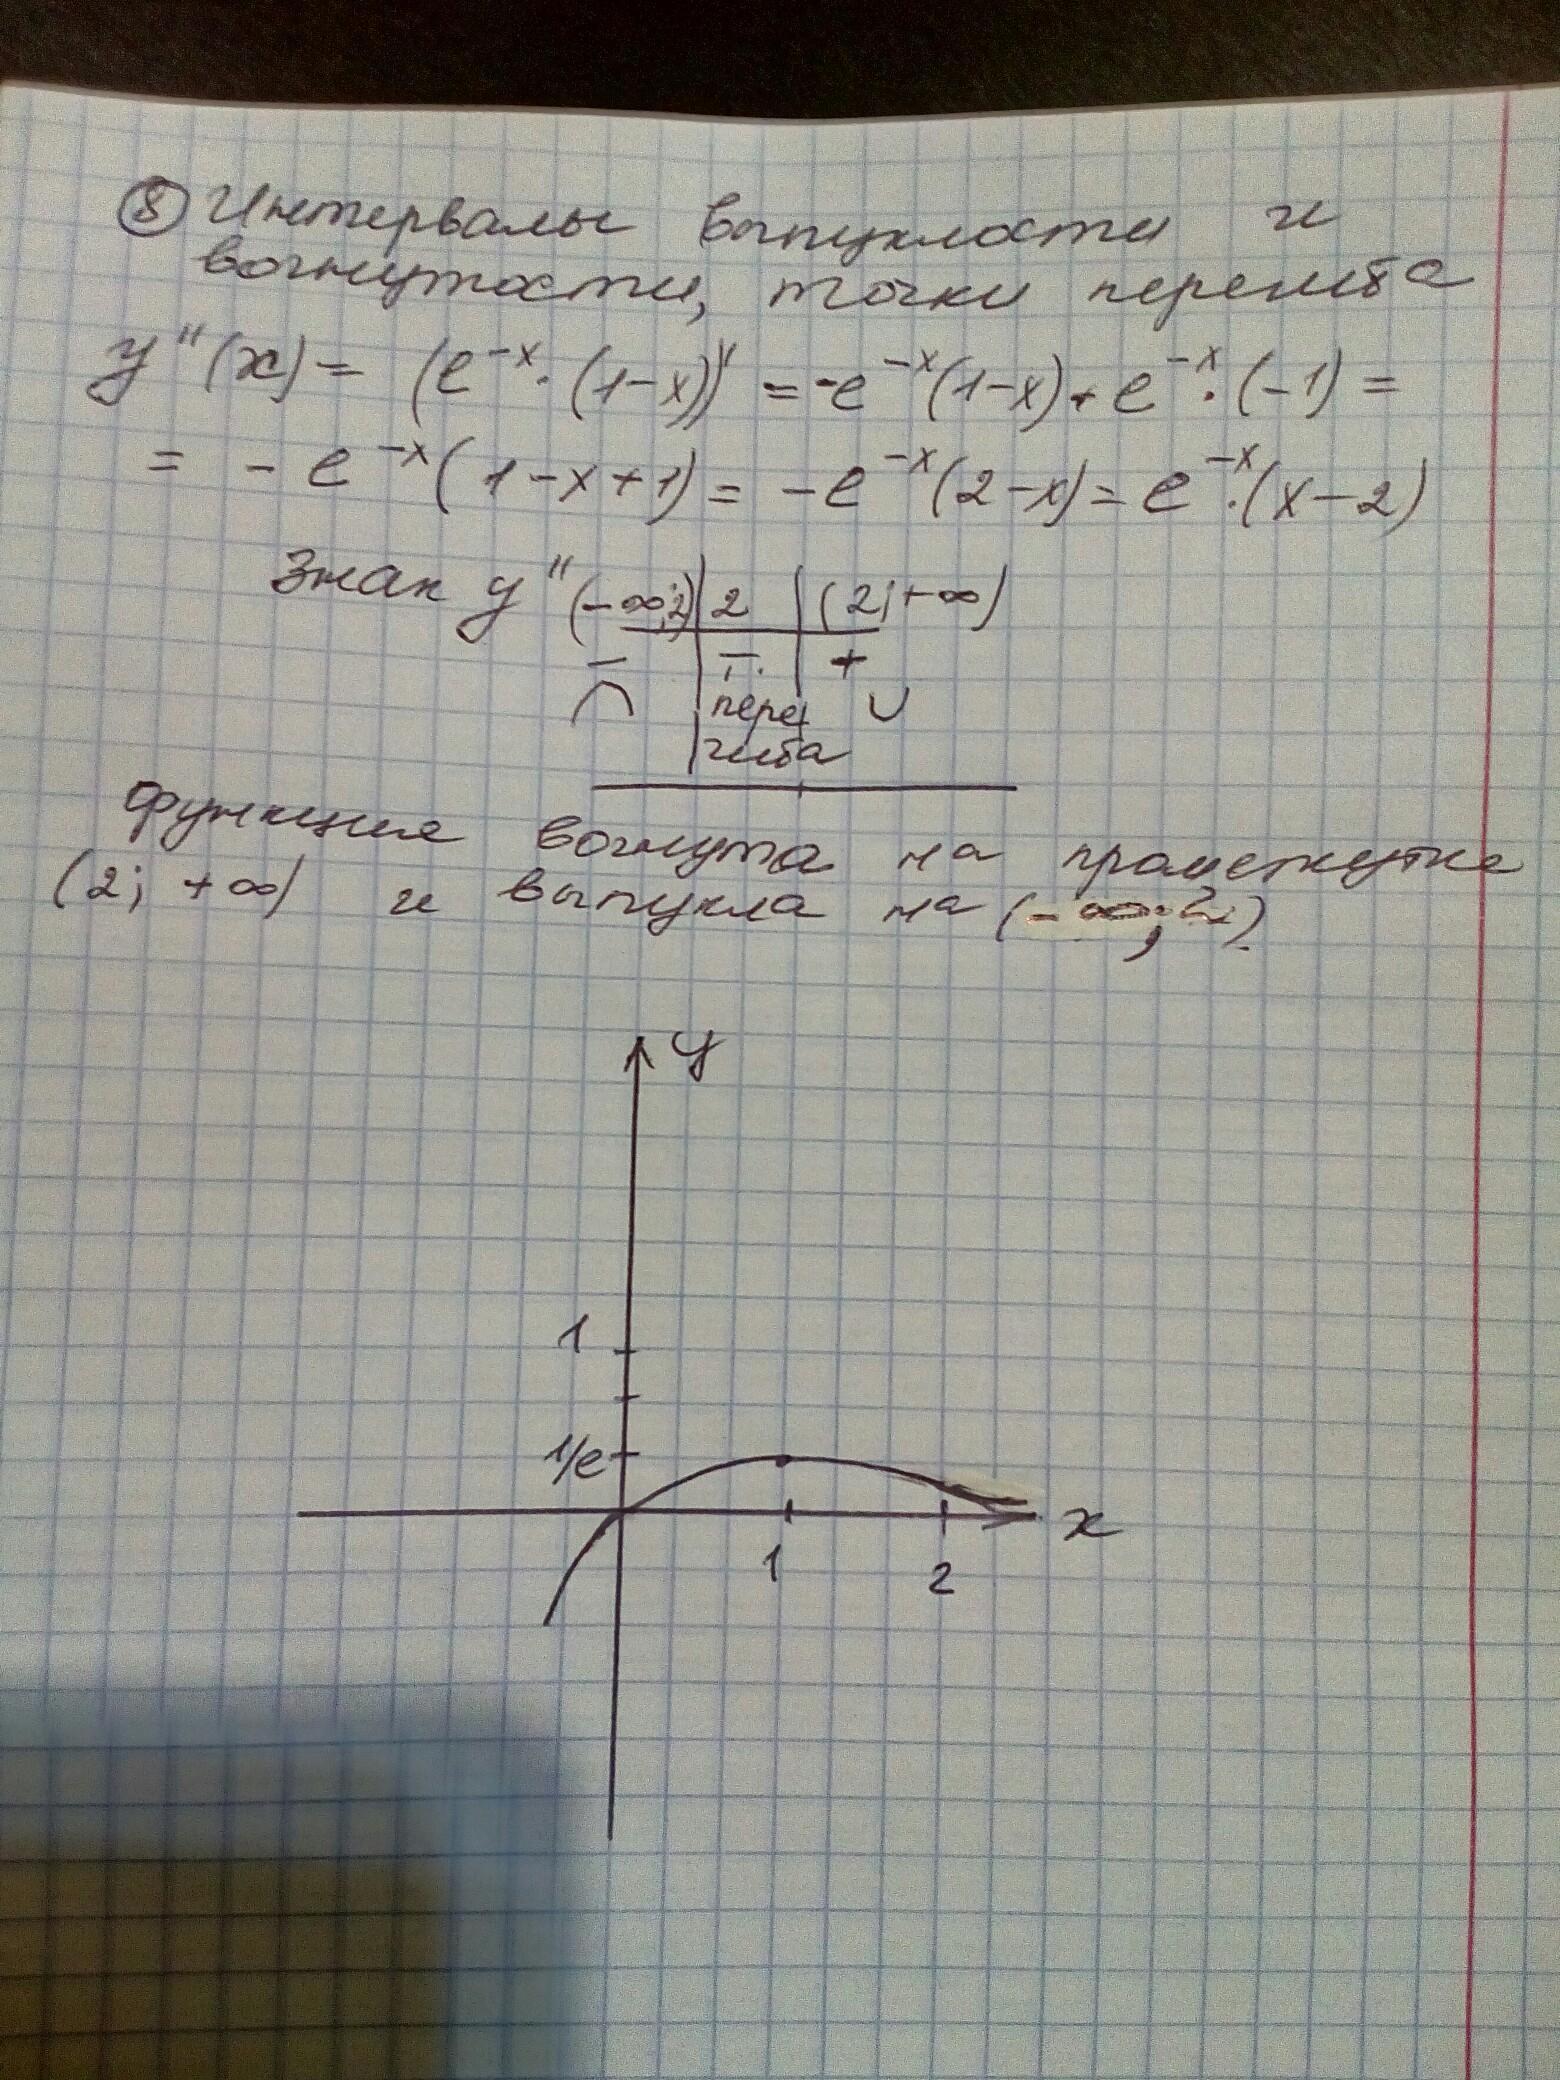 ⑧ Интервалы выпуклости и
вогнутости, точки перегиба
y''(x) = (e^{-x}·(1-x))' = -e^{-x}(1-x)+e^{-x}·(-1) =
= -e^{-x}(1-x+1) = -e^{-x}(2-x) = e^{-x}·(x-2)
Знак y'' (-∞;2) | 2 | (2;+∞)
- | т. | +
⌒ | пере | ∪
гиба
Функция вогнута на промежутке
(2; +∞) и выпукла на (-∞; 2)
y
1
1/e
x
1 2